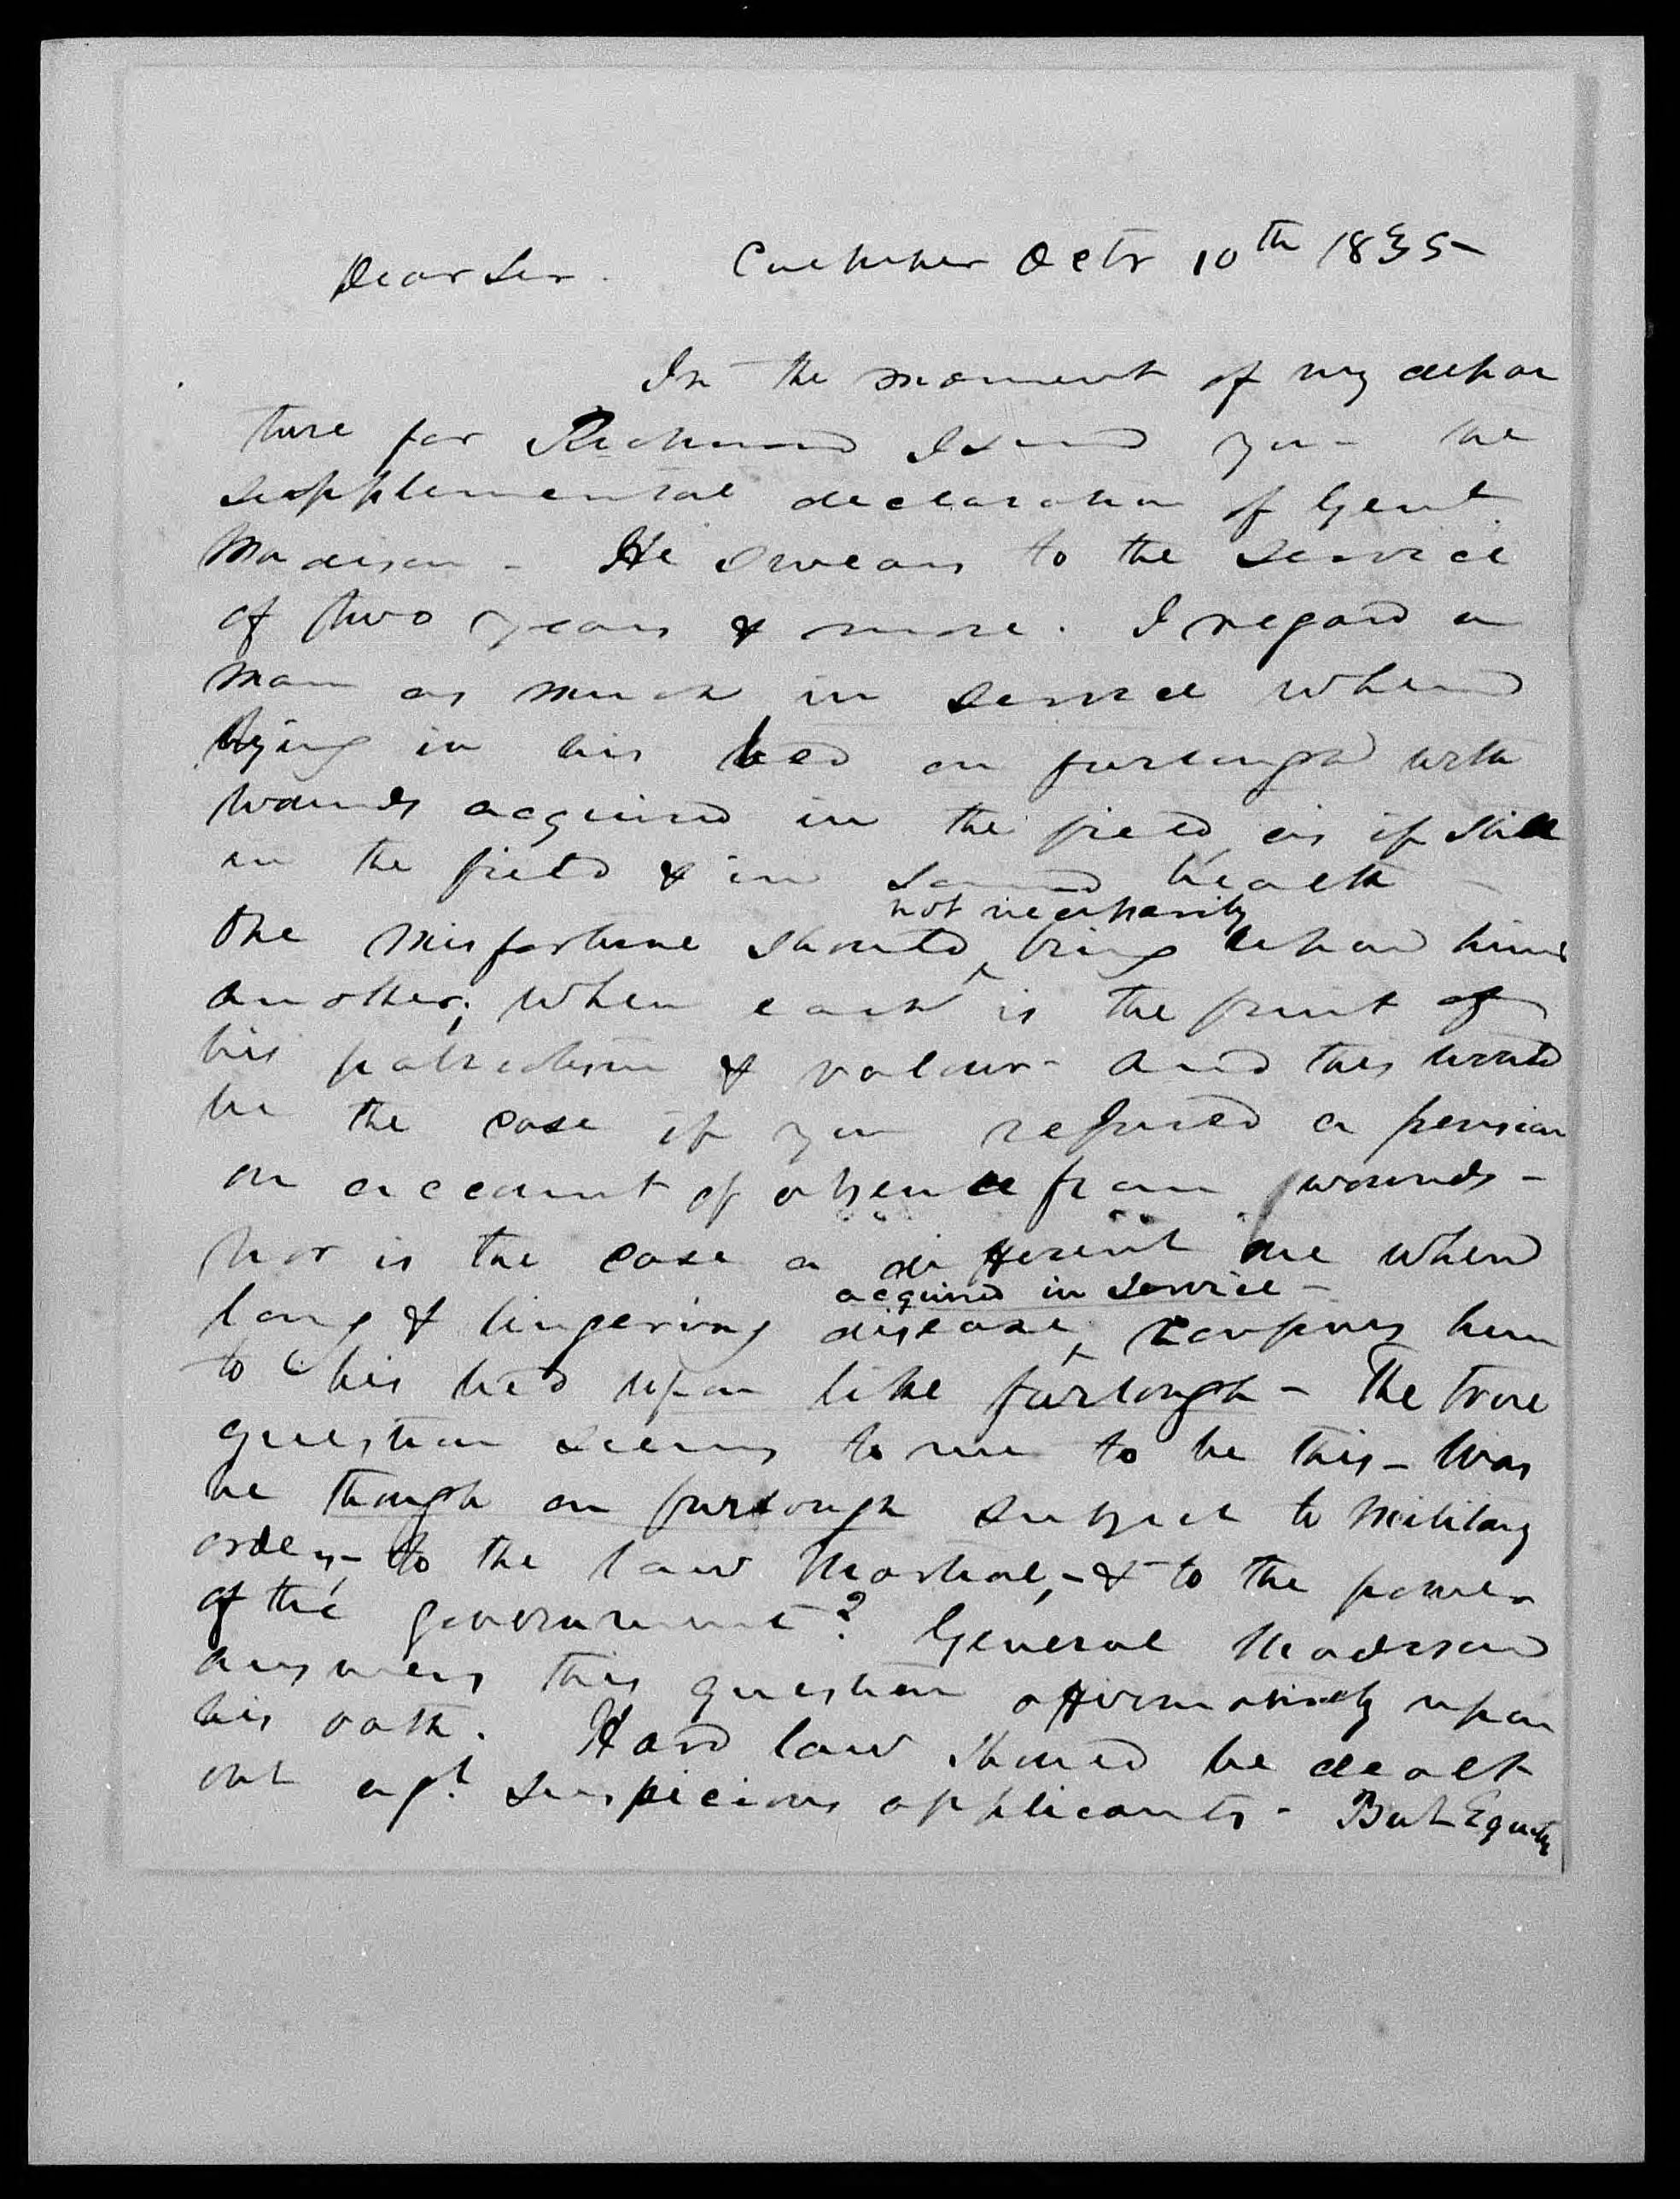 Dear Sir. Culpeper Octr 10th 1835-
In the moment of my depar
ture for Richmond I send you the
supplemental declaration of Genl.
Madison - He swears to the service
of two years & more. I regard a
man as much in service when
lying in his bed on furlough with
wounds acquired in the field as if still
in the field & in sound health -
not necessarily
One misfortune should ^ bring upon him
another; when each is the fruit of
his patriotism & valour - And this would
be the case if you refused a pension
on account of absence from wounds -
Nor is the case a different one when
acquired in service -
long & lingering disease ^ confines him
to his bed upon like furlough - The true
question seems to me to be this - Was
he though on furlough subject to military
orders - to the law Martial, - & to the power
of the government? General Madison
answers this question affirmatively upon
his oath. Hard law should be dealt
out agt. suspicious applicants - But Equity